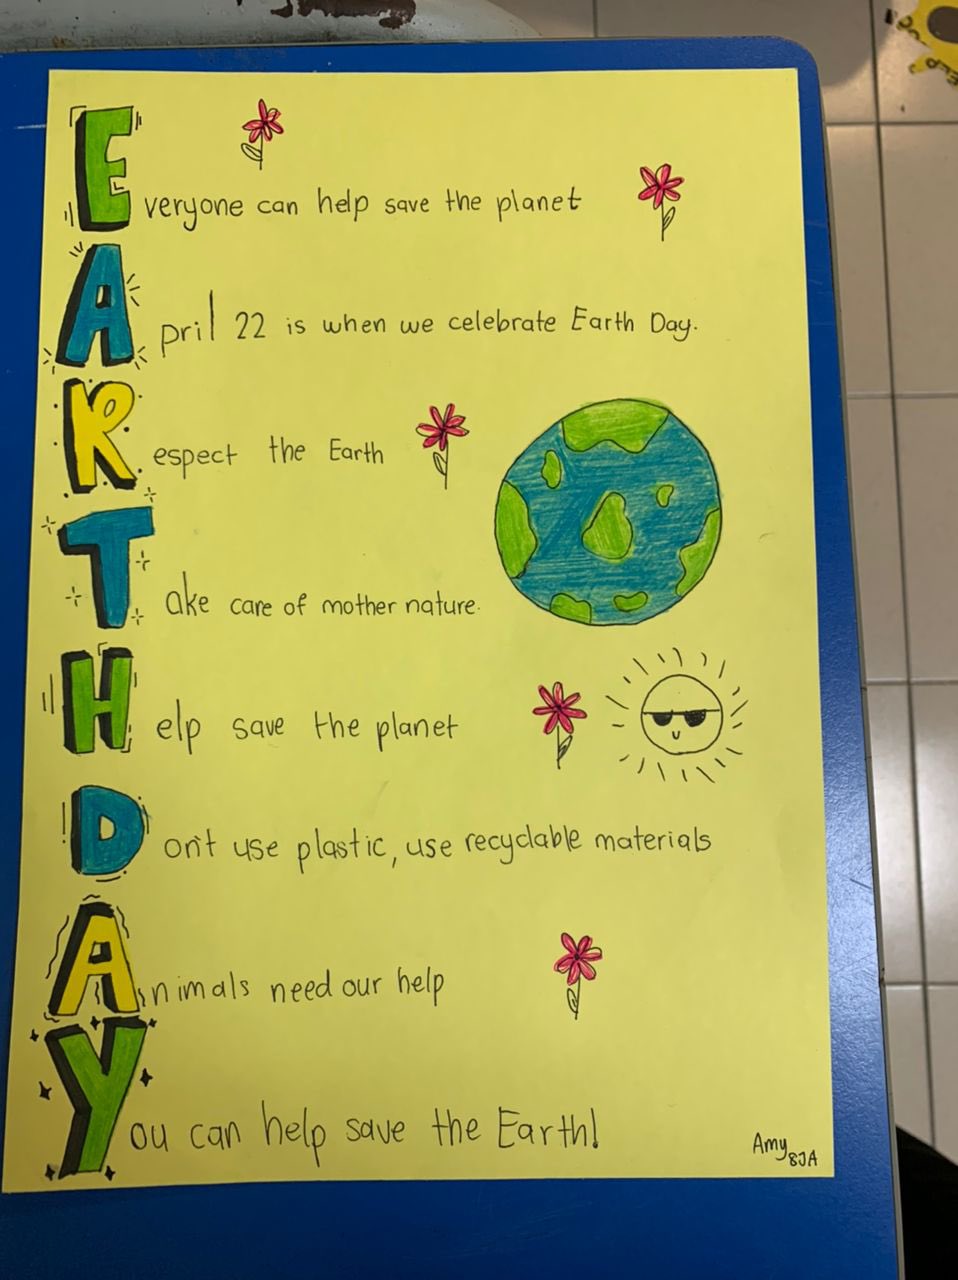 Everyone can help save the planet
April 22 is when we celebrate Earth Day.
Respect the Earth
Take care of mother nature.
Help save the planet
Don't use plastic, use recyclable materials
Animals need our help
You can help save the Earth!
Amy 8JA